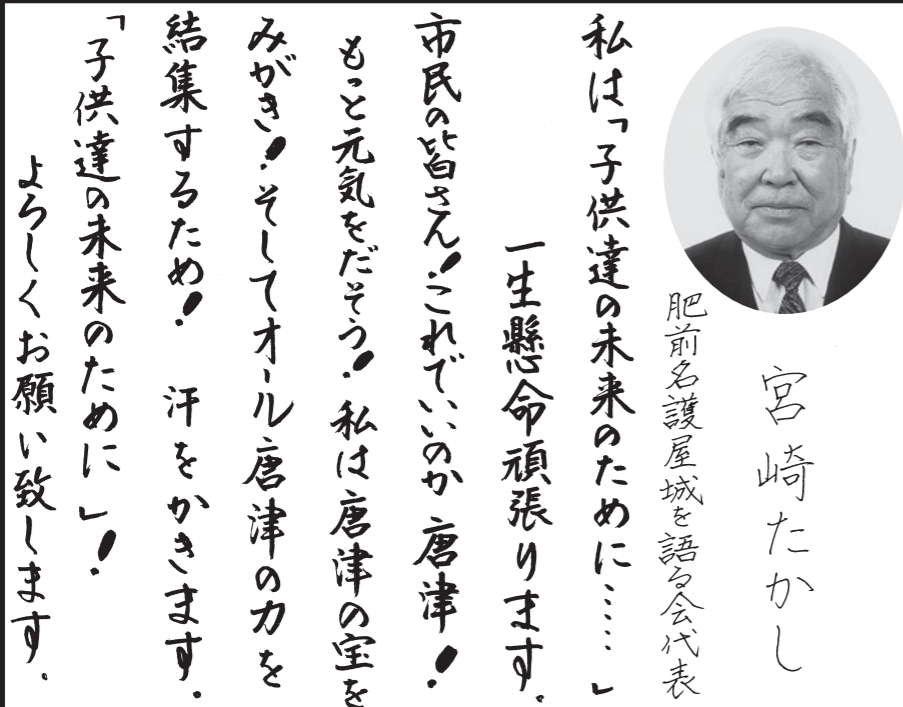 宮崎たかし
肥前名護屋城を語る会代表
私は「子供達の未来のために……」
一生懸命頑張ります。
市民の皆さん!これでいいのか 唐津!
もっと元気をだそう!私は唐津の宝を
みがき!そしてオール唐津の力を
結集するため! 汗をかきます。
「子供達の未来のために」!
よろしくお願い致します。